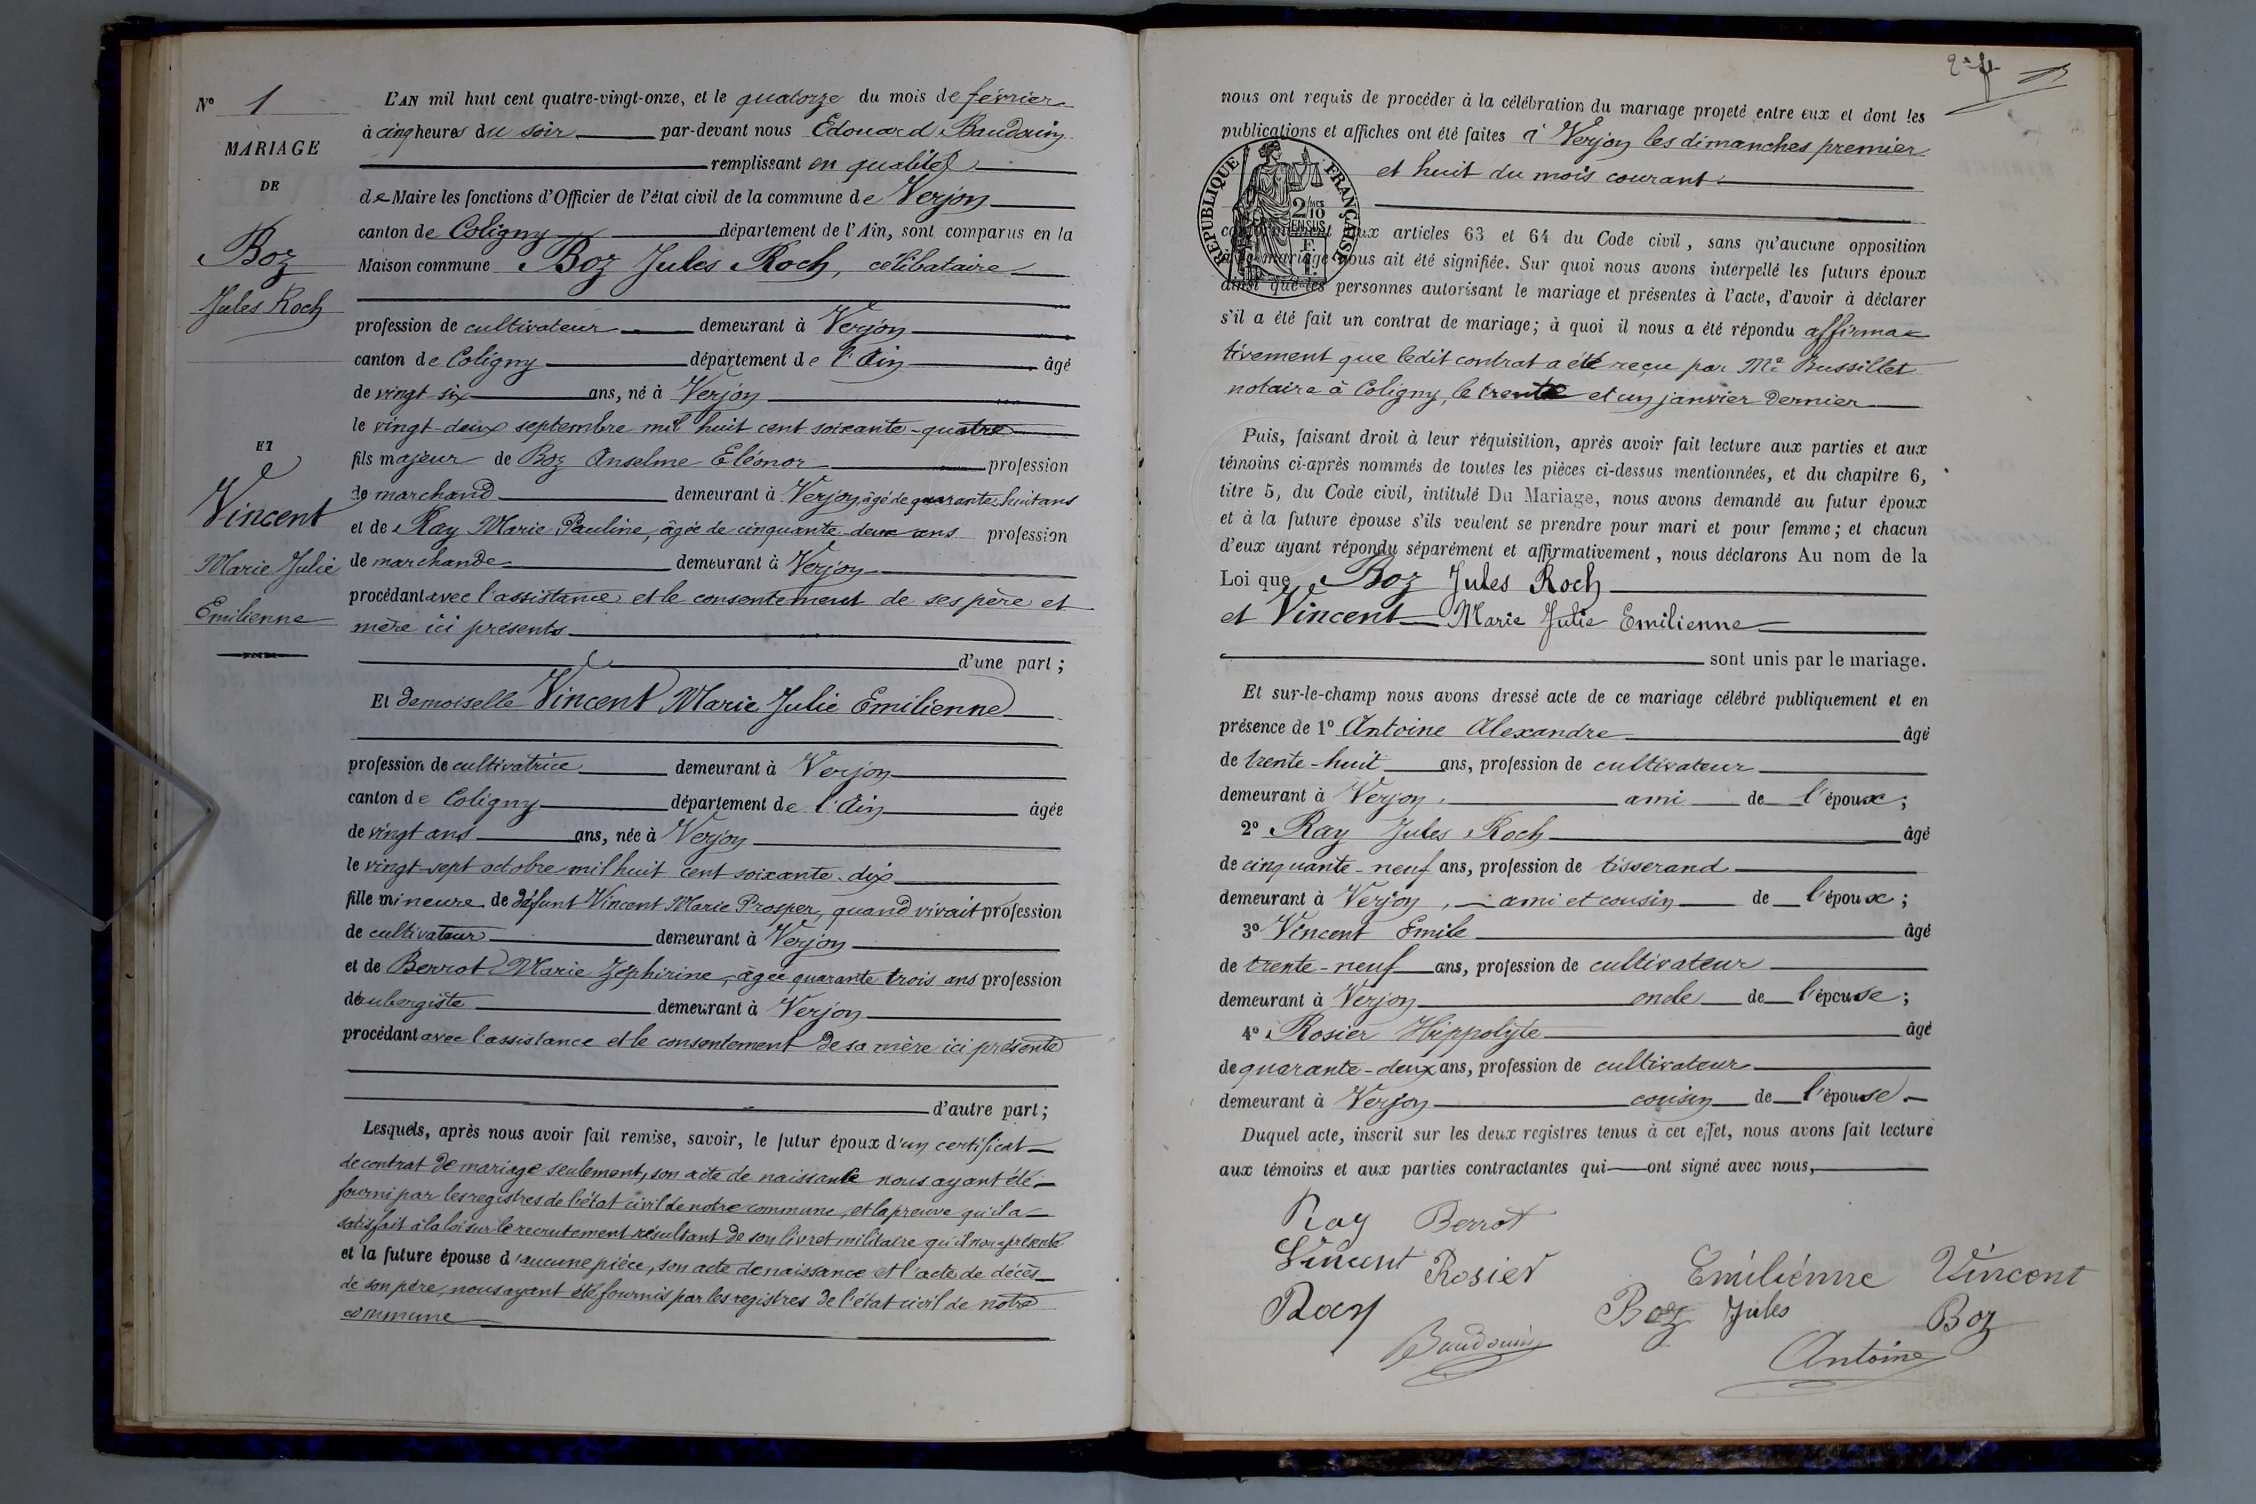 N° 1
MARIAGE
DE
Boz
Jules Roch
ET
Vincent
Marie Julie
Emilienne
L'AN mil huit cent quatre-vingt-onze, et le quatorze du mois de février
à cinq heures du soir par-devant nous Edouard Baudouin
remplissant en qualité
de Maire les fonctions d'Officier de l'état civil de la commune de Verjon
canton de Coligny département de l'Ain, sont comparus en la
Maison commune Boz Jules Roch, célibataire
profession de cultivateur demeurant à Verjon
canton de Coligny département de l'Ain âgé
de vingt-six ans, né à Verjon
le vingt-deux septembre mil huit cent soixante-quatre
fils majeur de Boz Anselme Eléonor profession
de marchand demeurant à Verjon, âgé de quarante huit ans
et de Ray Marie Pauline, âgée de cinquante deux ans profession
de marchande demeurant à Verjon
procédant avec l'assistance et le consentement de ses père et
mère ici présents
d'une part ;
Et demoiselle Vincent Marie Julie Emilienne
profession de cultivatrice demeurant à Verjon
canton de Coligny département de l'Ain âgée
de vingt ans ans, née à Verjon
le vingt-sept octobre mil huit cent soixante-dix
fille mineure de défunt Vincent Marie Prosper, quand vivait profession
de cultivateur demeurant à Verjon
et de Berrot Marie Zéphirine, âgée quarante trois ans profession
d'aubergiste demeurant à Verjon
procédant avec l'assistance et le consentement de sa mère ici présente
d'autre part ;
Lesquels, après nous avoir fait remise, savoir, le futur époux d'un certificat
de contrat de mariage seulement, son acte de naissance nous ayant été
fourni par les registres de l'état civil de notre commune, et la preuve qu'il a
satisfait à la loi sur le recrutement résultant de son livret militaire qu'il nous a présenté
et la future épouse d'aucune pièce, son acte de naissance et l'acte de décès
de son père, nous ayant été fournis par les registres de l'état civil de notre
commune
nous ont requis de procéder à la célébration du mariage projeté entre eux et dont les
publications et affiches ont été faites à Verjon les dimanches premier
et huit du mois courant
RÉPUBLIQUE FRANÇAISE
2/10 EN SUS
conformément aux articles 63 et 64 du Code civil, sans qu'aucune opposition
à ce mariage nous ait été signifiée. Sur quoi nous avons interpellé les futurs époux
ainsi que les personnes autorisant le mariage et présentes à l'acte, d'avoir à déclarer
s'il a été fait un contrat de mariage; à quoi il nous a été répondu affirma-
tivement que ledit contrat a été reçu par Me Bussillet
notaire à Coligny, le trente et un janvier dernier
Puis, faisant droit à leur réquisition, après avoir fait lecture aux parties et aux
témoins ci-après nommés de toutes les pièces ci-dessus mentionnées, et du chapitre 6,
titre 5, du Code civil, intitulé Du Mariage, nous avons demandé au futur époux
et à la future épouse s'ils veulent se prendre pour mari et pour femme; et chacun
d'eux ayant répondu séparément et affirmativement, nous déclarons Au nom de la
Loi que Boz Jules Roch
et Vincent Marie Julie Emilienne
sont unis par le mariage.
Et sur-le-champ nous avons dressé acte de ce mariage célébré publiquement et en
présence de 1° Antoine Alexandre âgé
de trente-huit ans, profession de cultivateur
demeurant à Verjon, ami de l'époux;
2° Ray Jules Roch âgé
de cinquante-neuf ans, profession de tisserand
demeurant à Verjon, ami et cousin de l'époux;
3° Vincent Emile âgé
de trente-neuf ans, profession de cultivateur
demeurant à Verjon oncle de l'épouse;
4° Rosier Hippolyte âgé
de quarante-deux ans, profession de cultivateur
demeurant à Verjon cousin de l'épouse.
Duquel acte, inscrit sur les deux registres tenus à cet effet, nous avons fait lecture
aux témoins et aux parties contractantes qui ont signé avec nous,
Ray Berrot
Vincent Rosier Emiliénne Vincent
Ray Boz Jules Boz
Baudouin Antoine